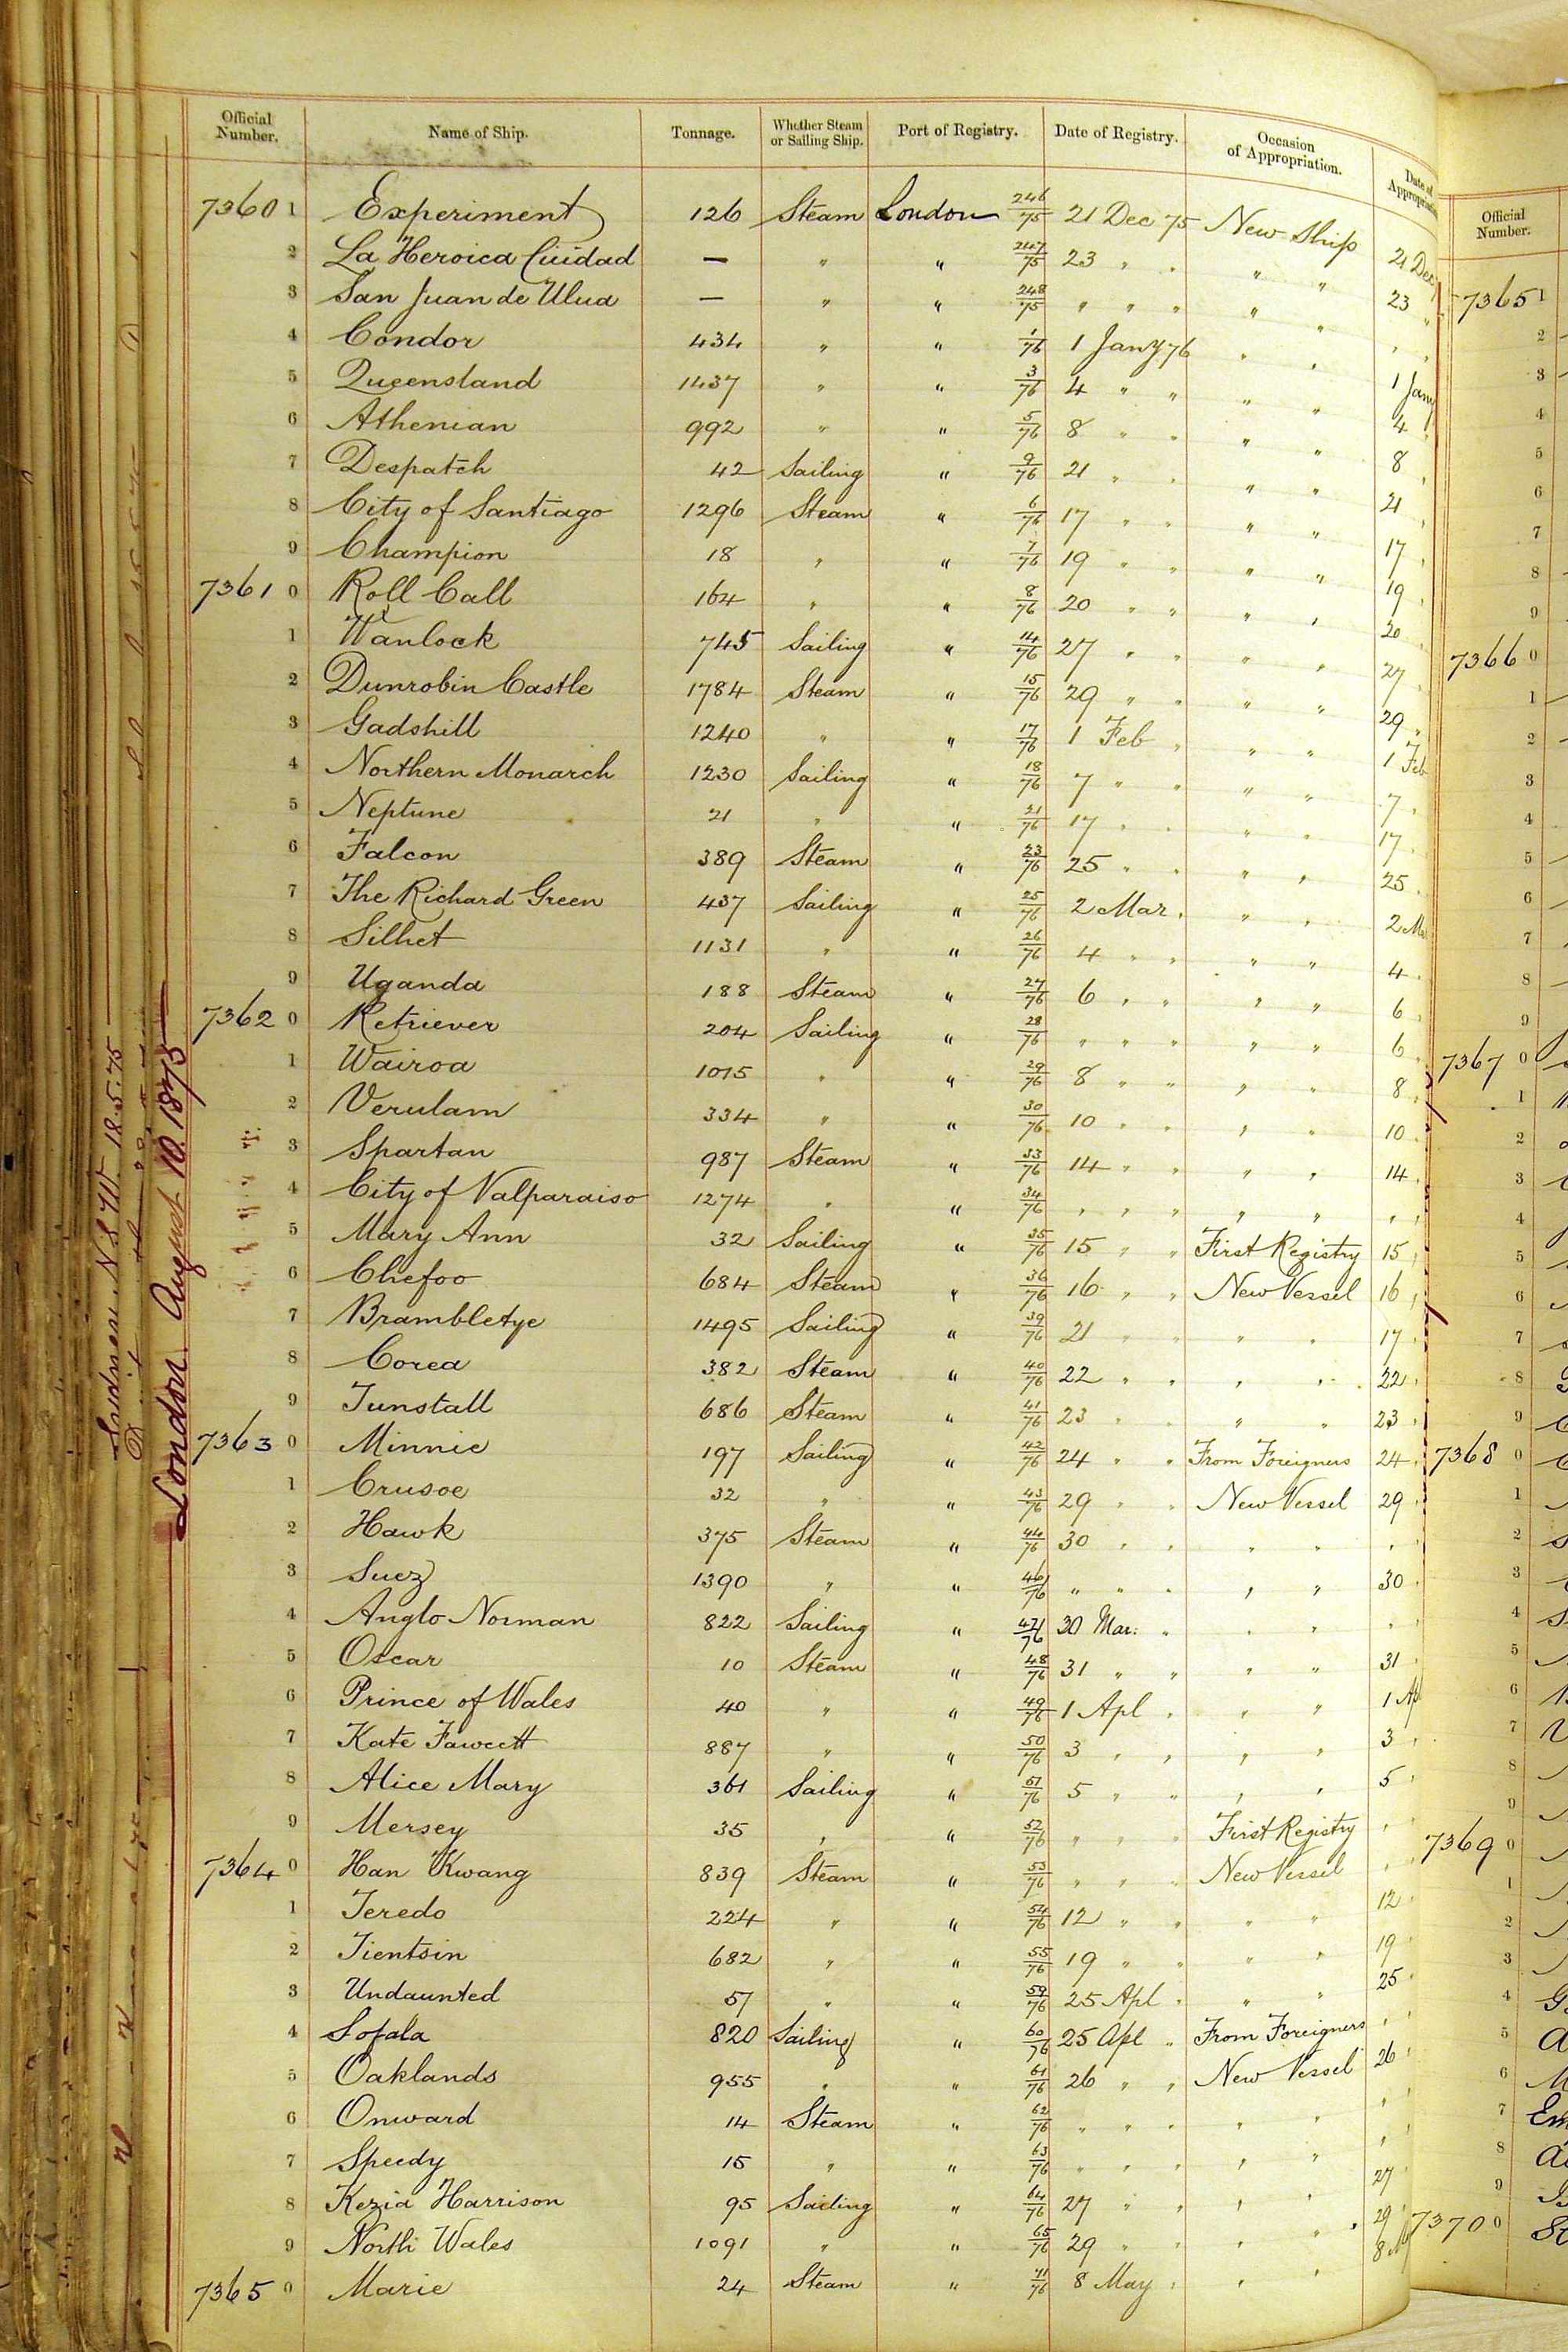 Official Number. Name of Ship. Tonnage. Whether Steam or Sailing Ship. Port of Registry. Date of Registry. Occasion of Appropriation. Date of Appropriation
7360 1 Experiment 126 Steam London 246/75 21 Dec 75 New Ship 21 Dec
2 La Heroica Ciudad — " " 247/75 23 " " " " 23 "
3 San Juan de Ulua — " " 248/75 " " " " " " "
4 Condor 434 " " 1/76 1 Jany 76 " " 1 Jany
5 Queensland 1437 " " 3/76 4 " " " " 4 "
6 Athenian 992 " " 5/76 8 " " " " 8
7 Despatch 42 Sailing " 9/76 21 " " " " 21 "
8 City of Santiago 1296 Steam " 6/76 17 " " " " 17 "
9 Champion 18 " " 7/76 19 " " " " 19 "
7361 0 Roll Call 164 " " 8/76 20 " " " " 20 "
1 Wanlock 745 Sailing " 14/76 27 " " " " 27 "
2 Dunrobin Castle 1784 Steam " 15/76 29 " " " " 29 "
3 Gadshill 1240 " " 17/76 1 Feb " " " 1 Feb
4 Northern Monarch 1230 Sailing " 18/76 7 " " " " 7 "
5 Neptune 21 " " 21/76 17 " " " " 17 "
6 Falcon 389 Steam " 23/76 25 " " " " 25 "
7 The Richard Green 437 Sailing " 25/76 2 Mar " " " 2 Ma
8 Silhet 1131 " " 26/76 4 " " " " 4 "
9 Uganda 188 Steam " 27/76 6 " " " " 6 "
7362 0 Retriever 204 Sailing " 28/76 " " " " " 6 "
1 Wairoa 1015 " " 29/76 8 " " " " 8 "
2 Verulam 334 " " 30/76 10 " " " " 10 "
3 Spartan 987 Steam " 33/76 14 " " " " 14 "
4 City of Valparaiso 1274 " " 34/76 " " " " " " "
5 Mary Ann 32 Sailing " 35/76 15 " " First Registry 15 "
6 Chefoo 684 Steam " 36/76 16 " " New Vessel 16 "
7 Brambletye 1495 Sailing " 39/76 21 " " " " 17 "
8 Corea 382 Steam " 40/76 22 " " " " 22 "
9 Tunstall 686 Steam " 41/76 23 " " " " 23 "
7363 0 Minnie 197 Sailing " 42/76 24 " " From Foreigners 24 "
1 Crusoe 32 " " 43/76 29 " " New Vessel 29 "
2 Hawk 375 Steam " 44/76 30 " " " " " "
3 Suez 1390 " " 46/76 " " " " " 30 "
4 Anglo Norman 822 Sailing " 47/76 30 Mar: " " " " "
5 Oscar 10 Steam " 48/76 31 " " " " 31 "
6 Prince of Wales 40 " " 49/76 1 Apl " " " 1 Ap
7 Kate Fawcett 887 " " 50/76 3 " " " " 3 "
8 Alice Mary 361 Sailing " 51/76 5 " " " " 5 "
9 Mersey 35 " " 52/76 " " " First Registry "
7364 0 Han Kwang 839 Steam " 53/76 " " " New Vessel "
1 Teredo 224 " " 54/76 12 " " " " 12 "
2 Tientsin 682 " " 55/76 19 " " " " 19 "
3 Undaunted 57 " " 59/76 25 Apl " " " 25 "
4 Sofala 820 Sailing " 60/76 25 Apl " From Foreigners " "
5 Oaklands 955 " " 61/76 26 " " New Vessel 26 "
6 Onward 14 Steam " 62/76 " " " " " "
7 Speedy 15 " " 63/76 " " " " " " "
8 Kezia Harrison 95 Sailing " 64/76 27 " " " " 27 "
9 North Wales 1091 " " 65/76 29 " " " " 29 "
7365 0 Marie 24 Steam " 71/76 8 May " " " 8 M
London August 10. 1875
N S W 18.5.75
Official Number.
7365 1
2
3
4
5
6
7
8
9
7366 0
1
2
3
4
5
6
7
8
9
7367 0
1
2
3
4
5
6
7
8
9
7368 0
1
2
3
4
5
6
7
8
9
7369 0
1
2
3
4
5
6
7
8
9
7370 0